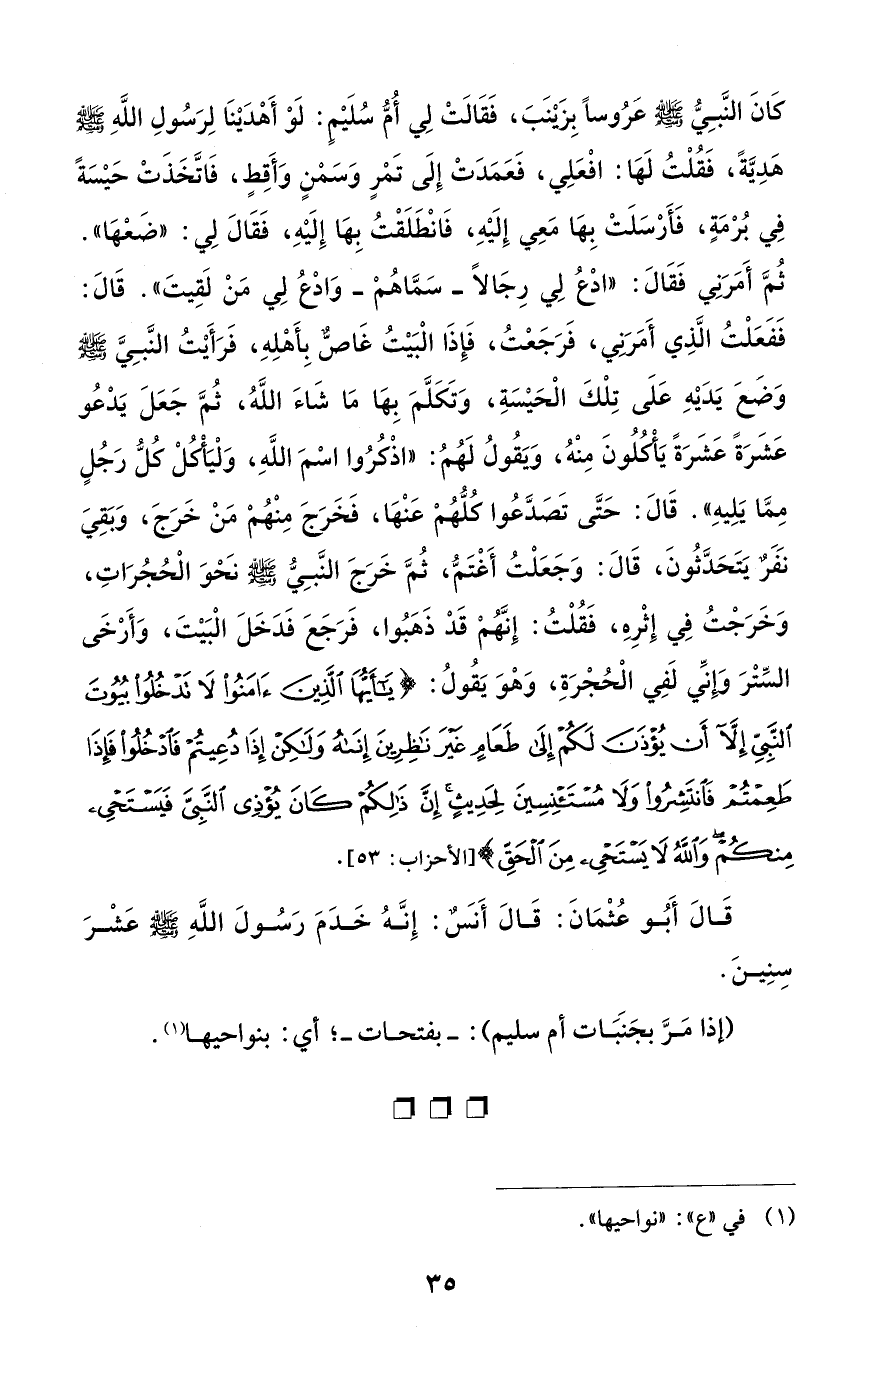 كَانَ النَّبِيُّ ﷺ عَرُوساً بِزَيْنَبَ، فَقَالَتْ لِي أُمُّ سُلَيْمٍ: لَوْ أَهْدَيْنَا لِرَسُولِ اللَّهِ ﷺ
هَدِيَّةً، فَقُلْتُ لَهَا: افْعَلِي، فَعَمَدَتْ إِلَى تَمْرٍ وَسَمْنٍ وَأَقِطٍ، فَاتَّخَذَتْ حَيْسَةً
فِي بُرْمَةٍ، فَأَرْسَلَتْ بِهَا مَعِي إِلَيْهِ، فَانْطَلَقْتُ بِهَا إِلَيْهِ، فَقَالَ لِي: «ضَعْهَا».
ثُمَّ أَمَرَنِي فَقَالَ: «ادْعُ لِي رِجَالاً ـ سَمَّاهُمْ ـ وَادْعُ لِي مَنْ لَقِيتَ». قَالَ:
فَفَعَلْتُ الَّذِي أَمَرَنِي، فَرَجَعْتُ، فَإِذَا الْبَيْتُ غَاصٌّ بِأَهْلِهِ، فَرَأَيْتُ النَّبِيَّ ﷺ
وَضَعَ يَدَيْهِ عَلَى تِلْكَ الْحَيْسَةِ، وَتَكَلَّمَ بِهَا مَا شَاءَ اللَّهُ، ثُمَّ جَعَلَ يَدْعُو
عَشَرَةً عَشَرَةً يَأْكُلُونَ مِنْهُ، وَيَقُولُ لَهُمُ: «اذْكُرُوا اسْمَ اللَّهِ، وَلْيَأْكُلْ كُلُّ رَجُلٍ
مِمَّا يَلِيهِ». قَالَ: حَتَّى تَصَدَّعُوا كُلُّهُمْ عَنْهَا، فَخَرَجَ مِنْهُمْ مَنْ خَرَجَ، وَبَقِيَ
نَفَرٌ يَتَحَدَّثُونَ، قَالَ: وَجَعَلْتُ أَغْتَمُّ، ثُمَّ خَرَجَ النَّبِيُّ ﷺ نَحْوَ الْحُجُرَاتِ،
وَخَرَجْتُ فِي إِثْرِهِ، فَقُلْتُ: إِنَّهُمْ قَدْ ذَهَبُوا، فَرَجَعَ فَدَخَلَ الْبَيْتَ، وَأَرْخَى
السِّتْرَ وَإِنِّي لَفِي الْحُجْرَةِ، وَهْوَ يَقُولُ: ﴿يَٰٓأَيُّهَا ٱلَّذِينَ ءَامَنُوا۟ لَا تَدْخُلُوا۟ بُيُوتَ
ٱلنَّبِيِّ إِلَّآ أَن يُؤْذَنَ لَكُمْ إِلَىٰ طَعَامٍ غَيْرَ نَٰظِرِينَ إِنَىٰهُ وَلَٰكِنْ إِذَا دُعِيتُمْ فَٱدْخُلُوا۟ فَإِذَا
طَعِمْتُمْ فَٱنتَشِرُوا۟ وَلَا مُسْتَـْٔنِسِينَ لِحَدِيثٍ ۚ إِنَّ ذَٰلِكُمْ كَانَ يُؤْذِى ٱلنَّبِىَّ فَيَسْتَحْىِۦ
مِنكُمْ ۖ وَٱللَّهُ لَا يَسْتَحْىِۦ مِنَ ٱلْحَقِّ﴾ [الأحزاب: ٥٣].
قَالَ أَبُو عُثْمَانَ: قَالَ أَنَسٌ: إِنَّهُ خَدَمَ رَسُولَ اللَّهِ ﷺ عَشْرَ
سِنِينَ.
(إذا مَرَّ بجَنَبَات أم سليم): ـ بفتحات ـ؛ أي: بنواحيها(١).
(١) في «ع»: «نواحيها».
٣٥